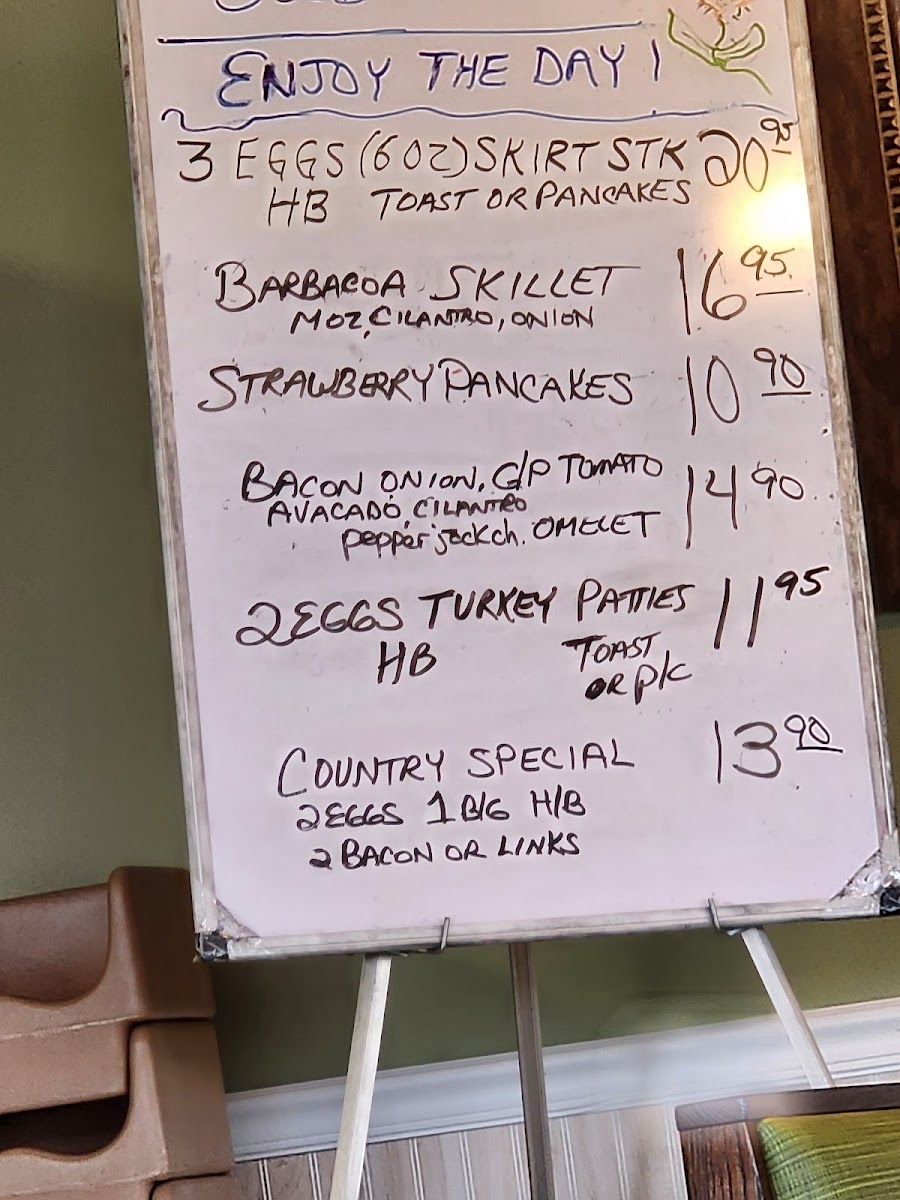 ENJOY THE DAY!
3 EGGS (6OZ) SKIRT STK 20 95
HB TOAST OR PANCAKES
BARBACOA SKILLET 16 95
MOZ, CILANTRO, ONION
STRAWBERRY PANCAKES 10 90
BACON ONION, G/P TOMATO 14 90
AVACADO, CILANTRO
pepper jack ch. OMELET
2 EGGS TURKEY PATTIES 11 95
HB TOAST
OR P/C
COUNTRY SPECIAL 13 90
2 EGGS 1 B/G H/B
2 BACON OR LINKS